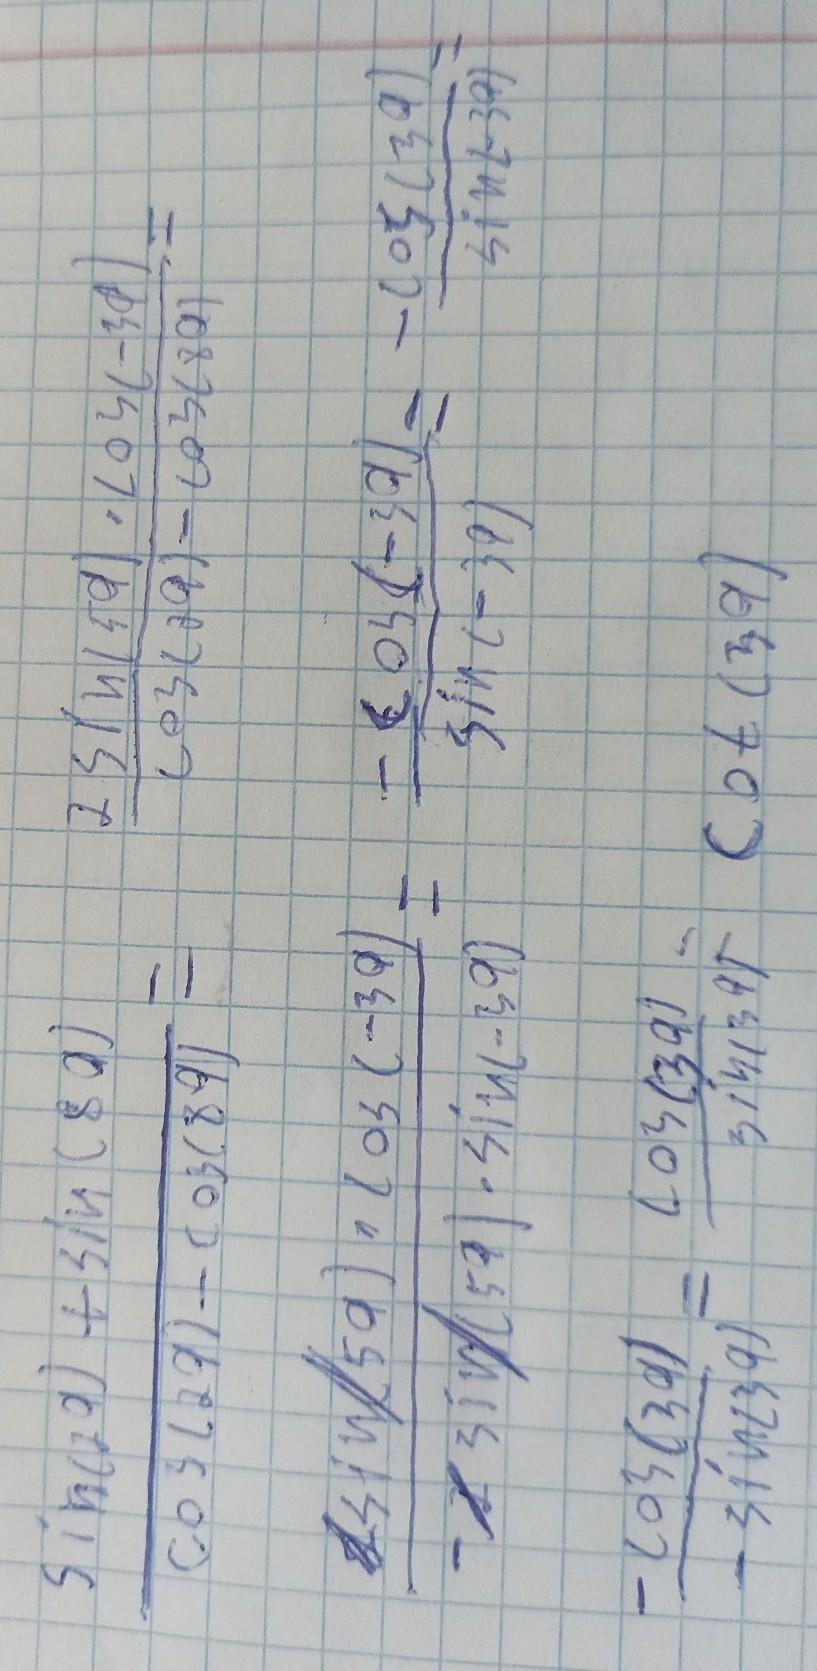 sin(2a) + sin(8a) / cos(2a) - cos(8a) = 2sin(5a) · cos(-3a) / cos(2a) - cos(8a) =
2sin(5a) · cos(-3a) / -2sin(5a) · sin(-3a) = -cos(-3a) / sin(-3a) = -cos(3a) / sin(-3a) =
-cos(3a) / -sin(3a) = cos(3a) / sin(3a) = cot(3a)